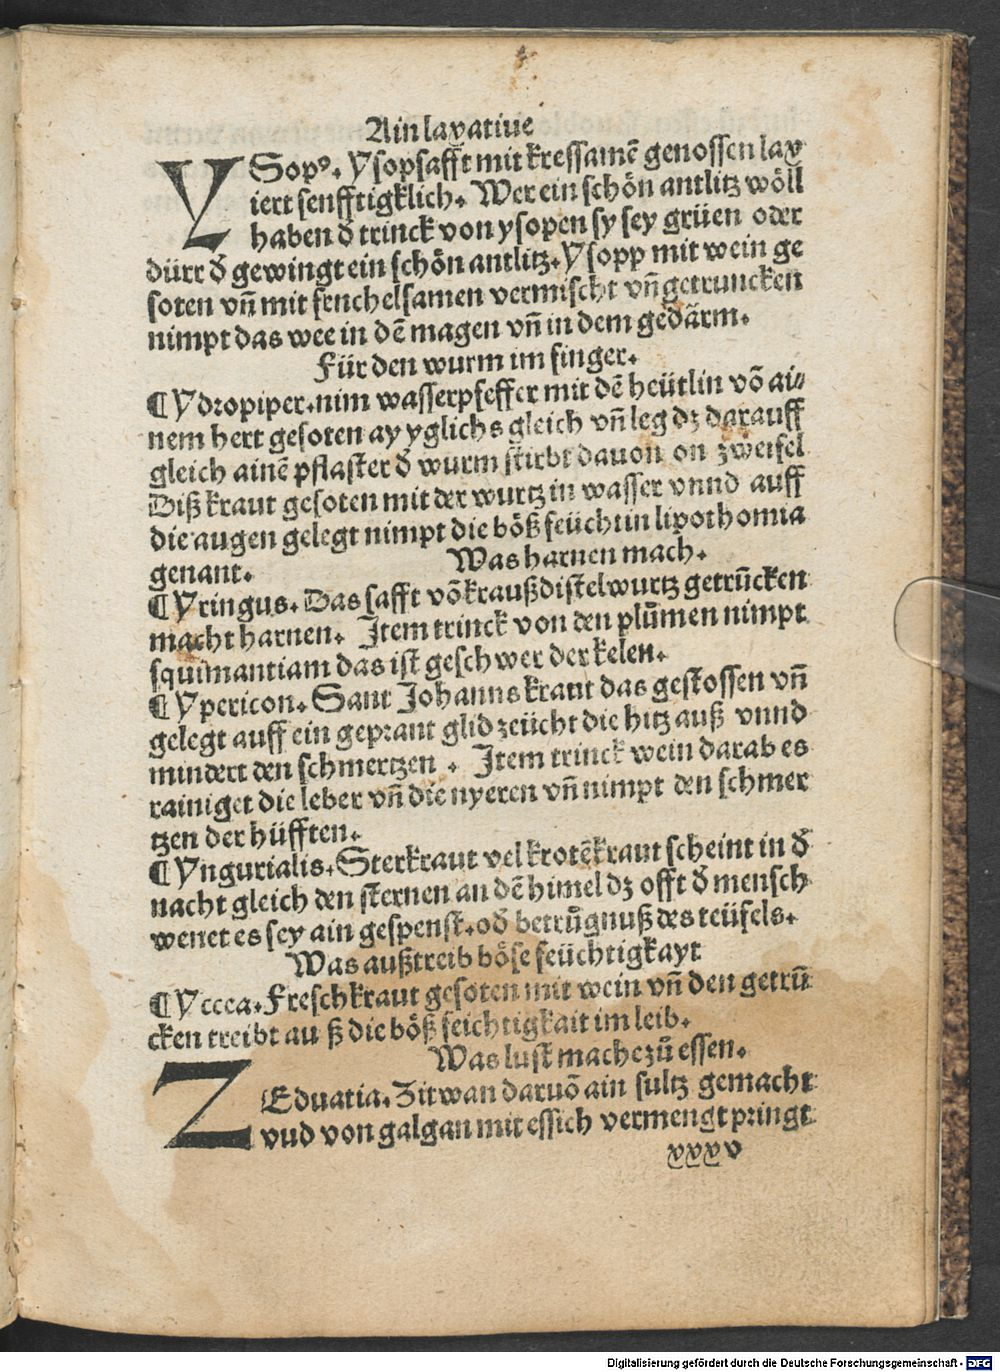 Ain laxatiue
YSopꝰ. Ysopsafft mit kressamē genossen lax
iert senfftigklich. Wer ein schön antlitz wöll
haben đ trinck von ysopen sy sey grüen oder
dürr đ gewingt ein schön antlitz. Ysopp mit wein ge
soten vn̄ mit fenchelsamen vermischt vn̄ getruncken
nimpt das wee in dē magen vn̄ in dem gedärm.
Für den wurm im finger.
¶ Ydropiper. nim wasserpfeffer mit dē heütlin vō ai⸗
nem hert gesoten ay yglichs gleich vn̄ leg dz darauff
gleich ainē pflaster đ wurm stirbt dauon on zweifel
Diß kraut gesoten mit der wurtz in wasser vnnd auff
die augen gelegt nimpt die böß feücht in lipothomia
genant. Was harnen mach.
¶ Yringus. Das safft vō kraußdistelwurtz getrūcken
macht harnen. Item trinck von den plūmen nimpt
squimantiam das ist geschwer der kelen.
¶ Ypericon. Sant Johanns kraut das gestossen vn̄
gelegt auff ein geprant glid zeücht die hitz auß vnnd
mindert den schmertzen . Item trinck wein darab es
rainiget die leber vn̄ die nyeren vn̄ nimpt den schmer
tzen der hüfften.
¶ Yngurialis. Sterkraut vel krotēkraut scheint in đ
nacht gleich den sternen an dē himel dz offt đ mensch
wenet es sey ain gespenst. ođ betrůgnuß des teüfels.
Was außtreib böse feüchtigkayt
¶ Yccea. Freschkraut gesoten mit wein vn̄ den getrū
cken treibt au ß die böß feichtigkait im leib.
Was lust mache zů essen.
ZEduatia. Zitwan daruō ain sultz gemacht
vud von galgan mit essich vermengt pringt
xxxv
Digitalisierung gefördert durch die Deutsche Forschungsgemeinschaft - DFG